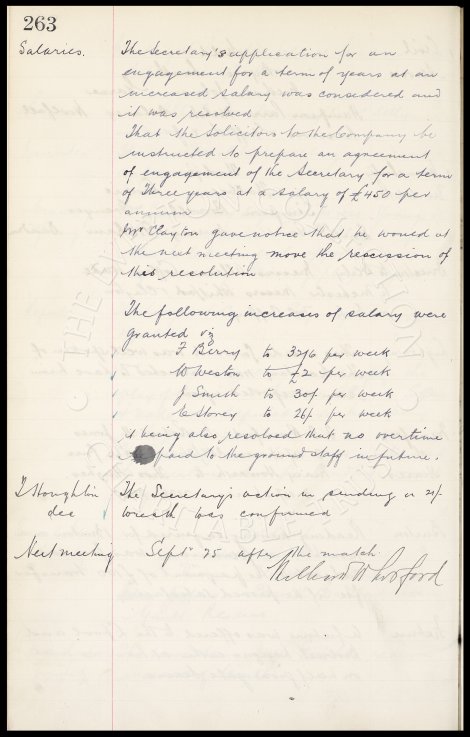 263
Salaries. The Secretary's application for an
engagement for a term of years at an
increased salary was considered and
it was resolved
That the Solicitors to the Company be
instructed to prepare an agreement
of engagement of the Secretary for a term
of Three years at a salary of £450 per
annum
Mr Clayton gave notice that he would at
the next meeting move the rescission of
this resolution
The following increases of salary were
granted viz
F Berry to 32/6 per week
W Weston to £2 per week
J Smith to 30/ per week
E Storey to 26/ per week
it being also resolved that no overtime
paid to the ground staff in future.
T Houghton The Secretary's action in sending a 21/
dec wreath was confirmed
Next meeting Sept 25 after the match